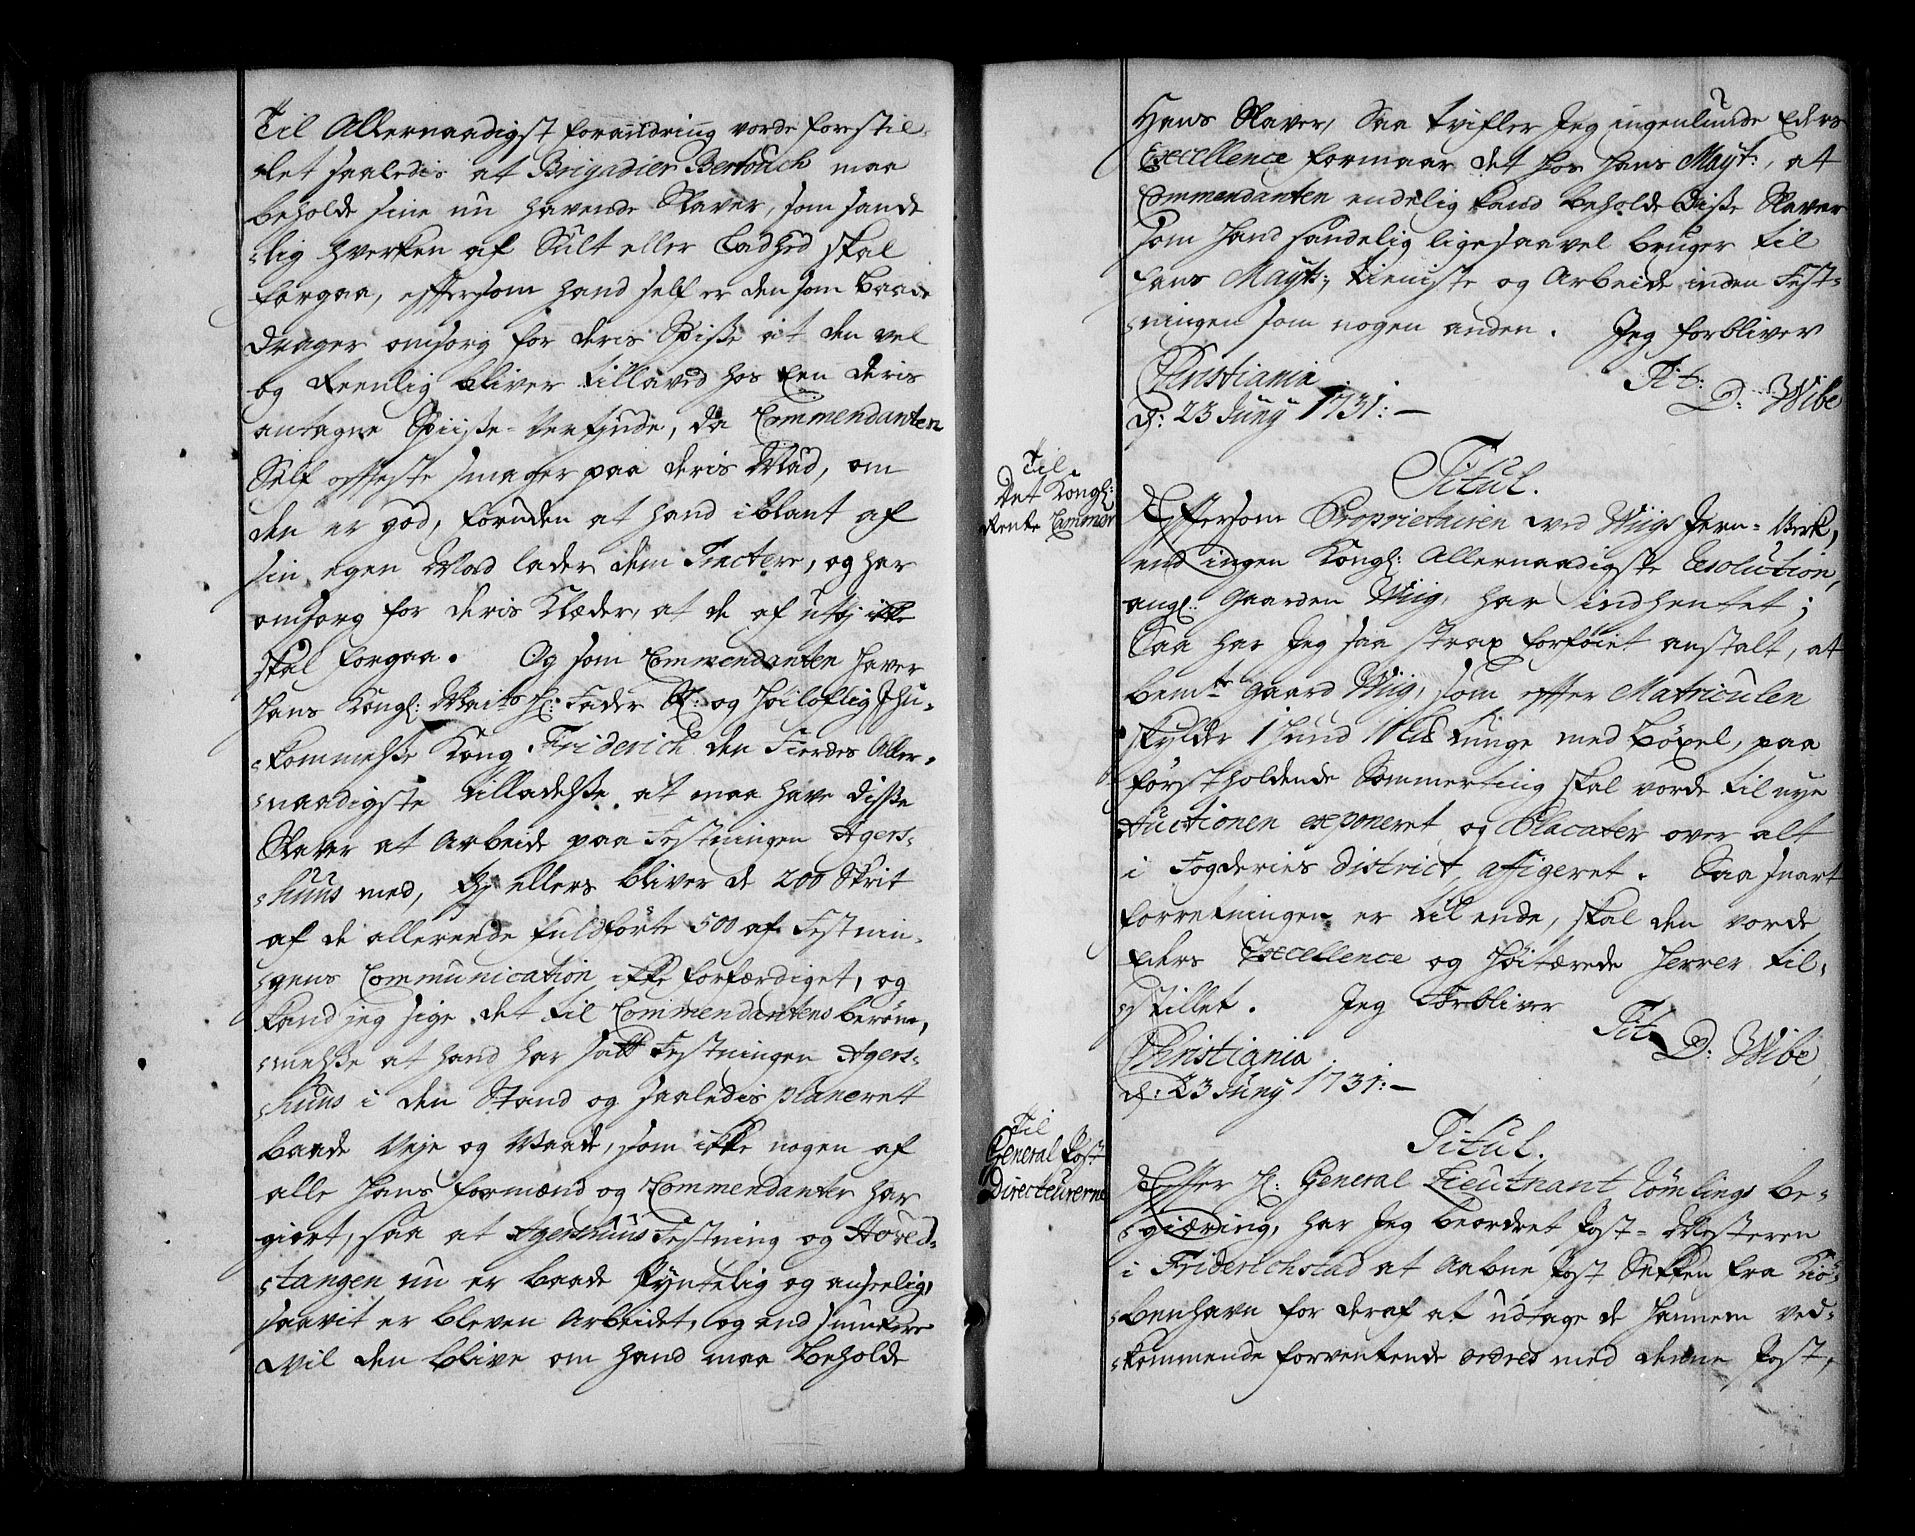 Til Allernaadigst forandring vorde forestil-
-let saaledis at Brigadier Bertouch maa
beholde sine nu havende Slaver, som sande
-lig hverken af Sult eller Ladhed skal
forgaa, eftersom hand self er den som baade
drager omsorg for deris Spiße at den vel
og Reenlig bliver tillaved hos Een deris
antagne Spiiße-Vertinde, da Commendanten
Self offteste smager paa deris Mad, om
den er god, foruden at hand iblant af
sin egen Mad lader dem Tractere, og har
omsorg for deris Klæder, at de af utøj ikke
skal forgaa. Og som Commendanten haver
Hans Kongl: Maits Hr: Fader Sl: og Høiloflig Ihu-
-kommelße Kong Friderich den Fierdes Aller-
-naadigste tilladelße at maa have diße
Slaver at Arbeide paa Festningen Agers-
-huus med, thj ellers bliver de 200 Skrit
af de allerende fuldførte 500 af Festnin-
-gens Communication ikke forfærdiget, og
kand jeg sige det til Commendantens berøm-
-melße at hand har satt Festningen Agers-
-huus i den Stand og saaledis planeret
baade Veje og Vaade, som ikke nogen af
alle Hans formænd og Commendanter har
giort, saa at Agershuus Festning og Hoved-
-tangen nu er baade Pyntelig og anseelig,
saavit er bleven Arbeidet, og end smukkere
vil den blive om hand maa beholde
Hans Slaver, Saa tvifler Jeg ingenlunde Eders
Excellence formaar det hos Hans Mayt:, at
Commendanten endelig kand beholde Diße Slaver
som hand sandelig ligesaavel bruger til
Hans Mayts: tieniste og Arbeide inden Fest-
-ningen som nogen anden. Jeg forbliver
Christiania Tit:
d: 23 Juny 1731:— D: Wibe
Til
Det Kongl:
Rente Cammer
Titul.
Eftersom Proprietairen ved Wiigs Jern-Verk,
end ingen Kongl: Allernaadigste Resolution,
angl: Gaarden Wiig, har indhentet;
Saa har Jeg saa strax forføiet anstalt, at
bemte Gaard Wiig, som efter Matriculen
skylder 1 Hund tunge med Bøxel, paa
førstholdende Sommerting skal vorde til nye
Auctionen exponeret, og Placater over alt
i Fogderies District affigeret. Saa snart
forretningen er til ende, skal den vorde
Eders Excellence og Høitærede Herrer til-
-stillet. Jeg Forbliver
Tit:
Christiania D: Wibe
d: 23 Juny 1731:—
Til
General Post
Directeurerne
Titul.
Efter Hr: General Lieutnant Rømlings be-
-giæring, har Jeg beordret Post-Mesteren
i Friderichstad at Aabne Post Sekken fra Kiø-
-benhavn for deraf at udtage de Hannem ved-
-kommende forventende ordres med denne Post,